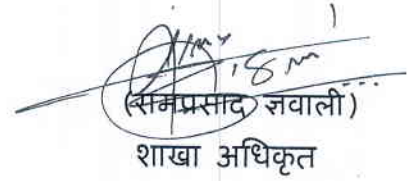 (रामप्रसाद ज्ञवाली)
शाखा अधिकृत